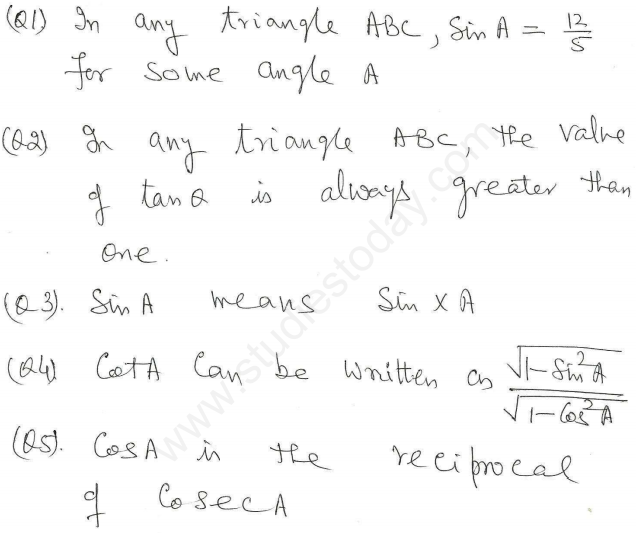 (Q1) In any triangle ABC, Sin A = 12/5
for some angle A
(Q2) In any triangle ABC, the value
of tan θ is always greater than
one.
(Q3). Sin A means Sin x A
(Q4) Cot A Can be written as √(1-Sin²A)/√(1-Cos²A)
(Q5). Cos A is the reciprocal
of Cosec A
www.studiestoday.com